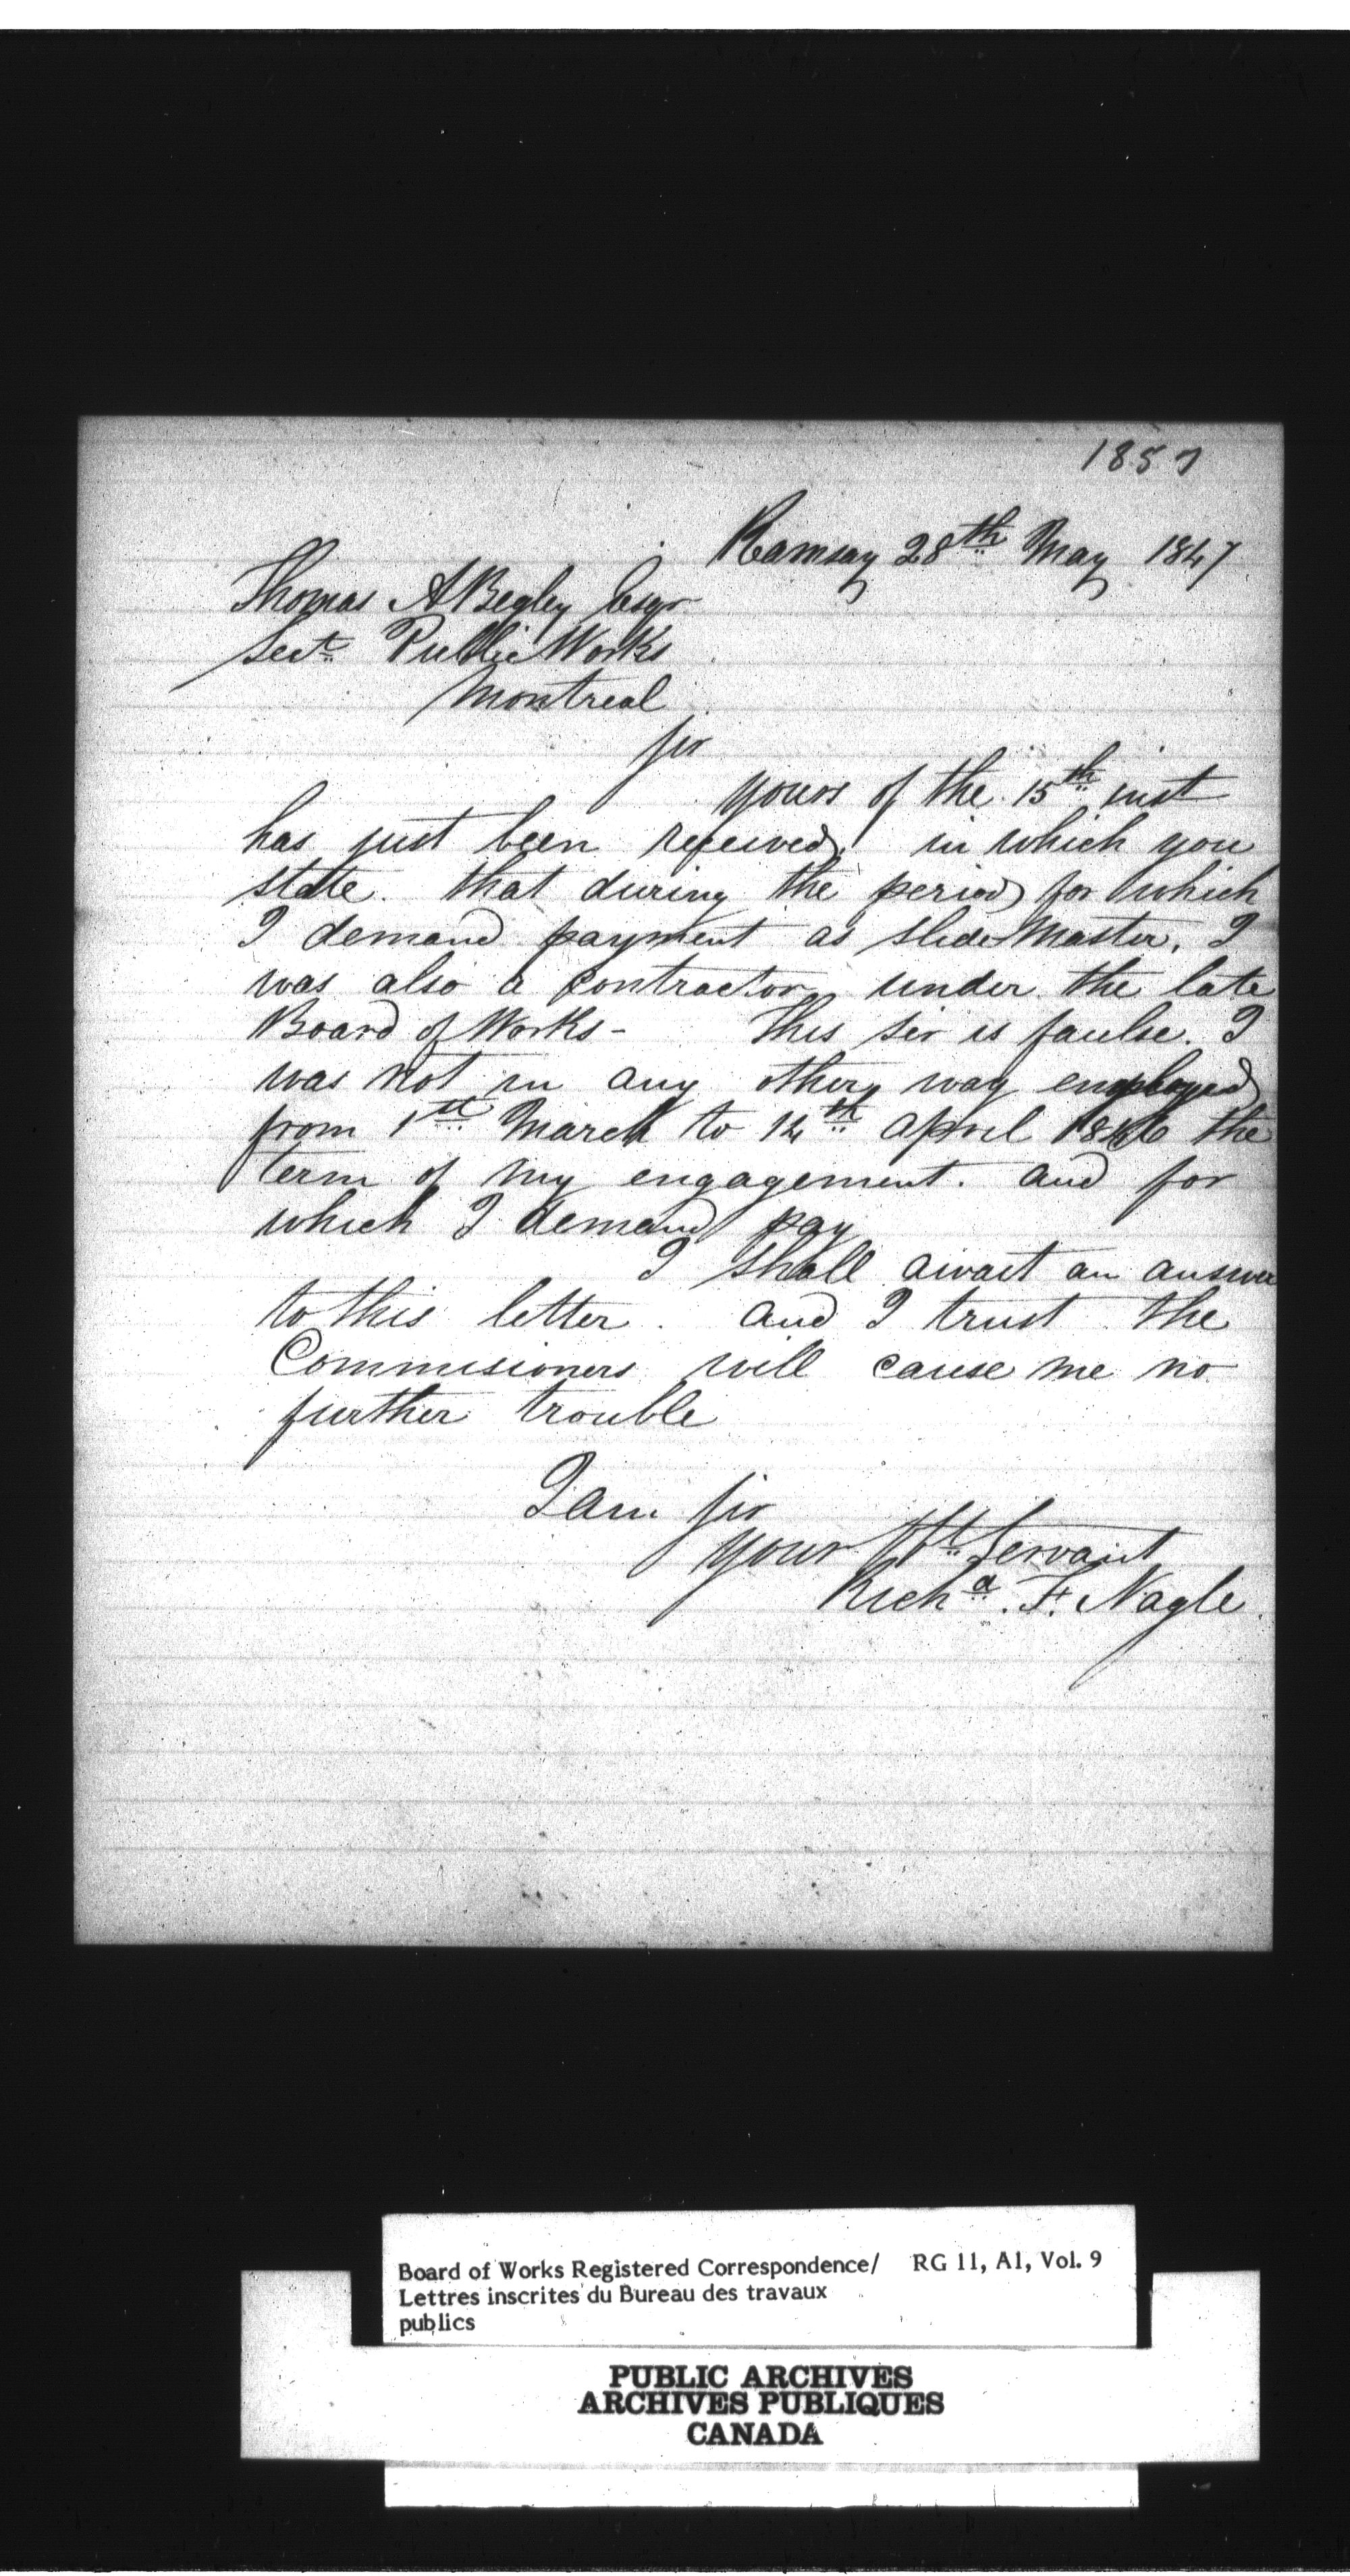 1857
Ramsay 28th May 1847
Thomas A Begley Esqr
Sect Public Works
Montreal
Sir
Yours of the 15th inst
has just been received, in which you
state. that during the period for which
I demand payment as Slide Master, I
was also a Contractor under the late
Board of Works - This Sir is faulse. I
was not in any other way employed
from 1st March to 14th April 1846 the
term of my engagement. and for
which I demand pay
I shall await an answer
to this letter. and I trust the
Commisioners will cause me no
further trouble
I am Sir
your Obt Servant
Richd. F. Nagle.
Board of Works Registered Correspondence/ RG 11, A1, Vol. 9
Lettres inscrites du Bureau des travaux
publics
PUBLIC ARCHIVES
ARCHIVES PUBLIQUES
CANADA